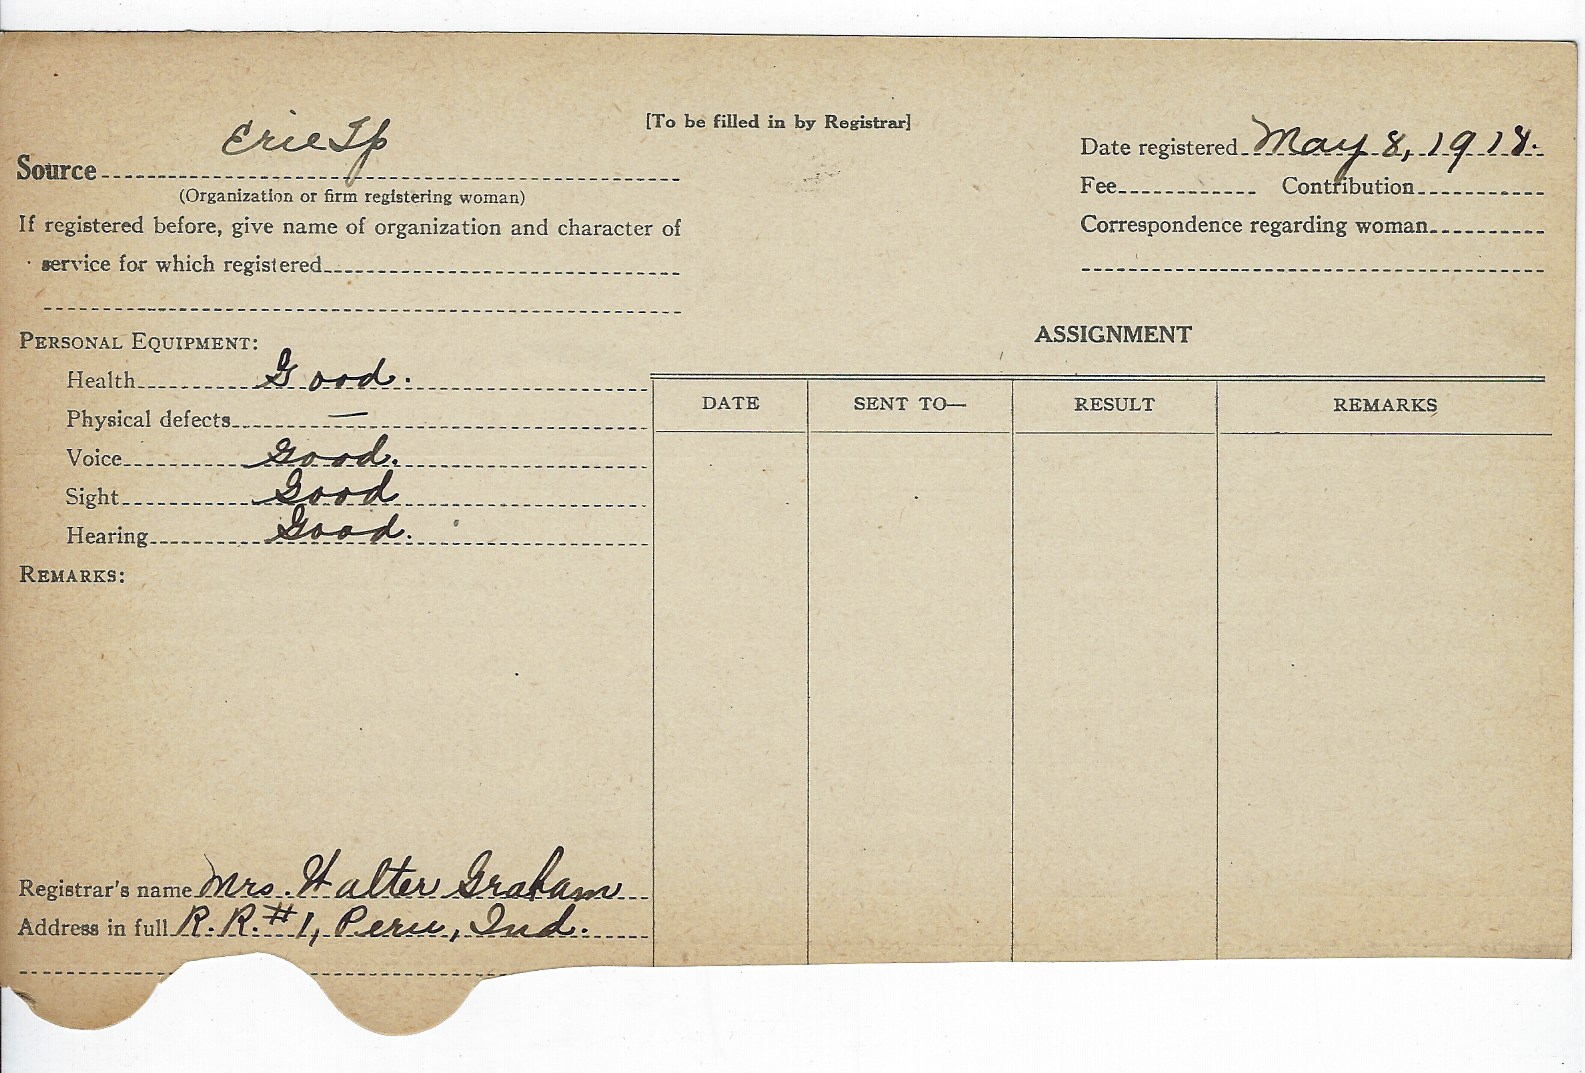 [To be filled in by Registrar]
Source Erie Tp
(Organization or firm registering woman)
If registered before, give name of organization and character of
service for which registered
Date registered May 8, 1918.
Fee Contribution
Correspondence regarding woman
PERSONAL EQUIPMENT:
Health Good.
Physical defects —
Voice Good.
Sight Good
Hearing Good.
REMARKS:
Registrar's name Mrs. Walter Graham
Address in full R.R. #1, Peru, Ind.
ASSIGNMENT
DATE SENT TO— RESULT REMARKS